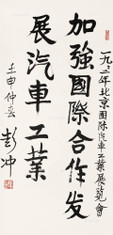 一九九二年北京国际汽車工業展览會
加強國際合作发
展汽車工業
壬申仲春
彭冲